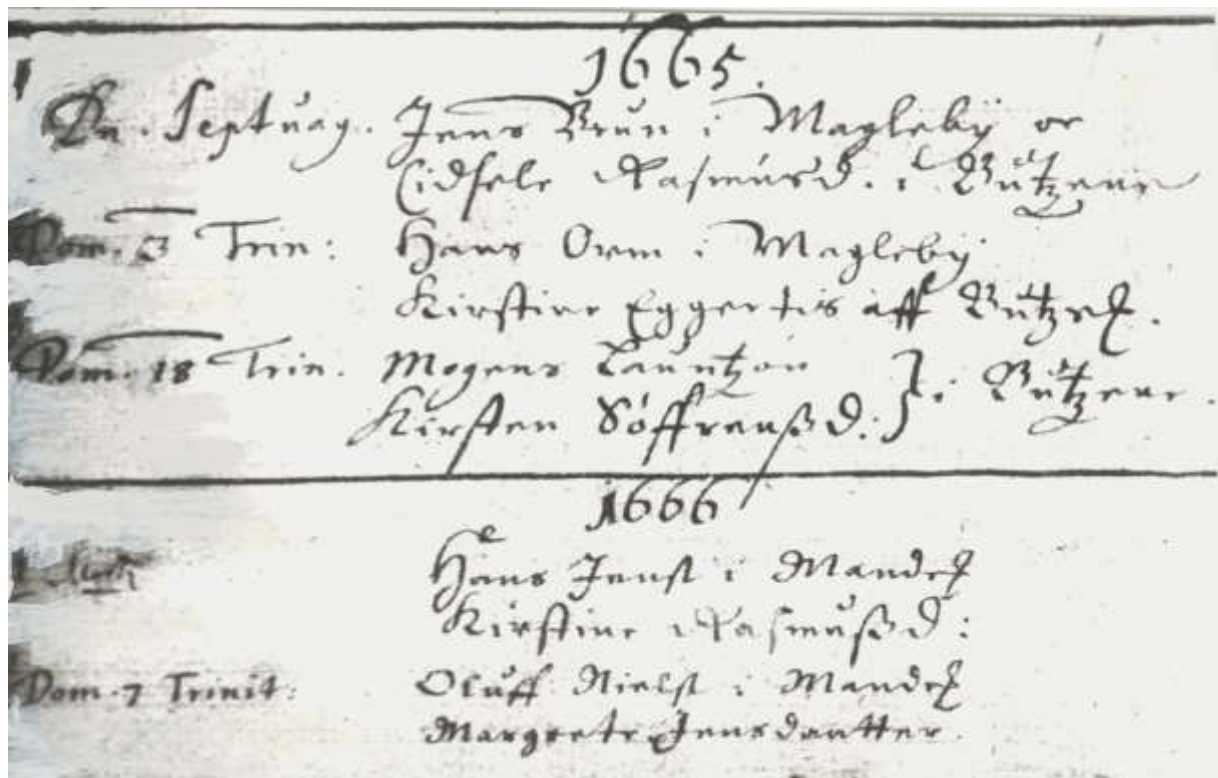 1665.
Dn. Septuag. Jens Brun i Magleby oc
Cidsele Rasmusd. i Bützene
Dom. 3 Trin: Hans Orm i Magleby
Kirstine Eggertis aff Bütze
Dom. 18 Trin. Mogens Lauritzøn
Kirsten Søffrensd: } i Bützene.
1666
Hans Jenss i Mande
Kirstine Rasmusd:
Dom. 7 Trinit: Oluff Nielss i Mande
Margrete Jensdaatter.